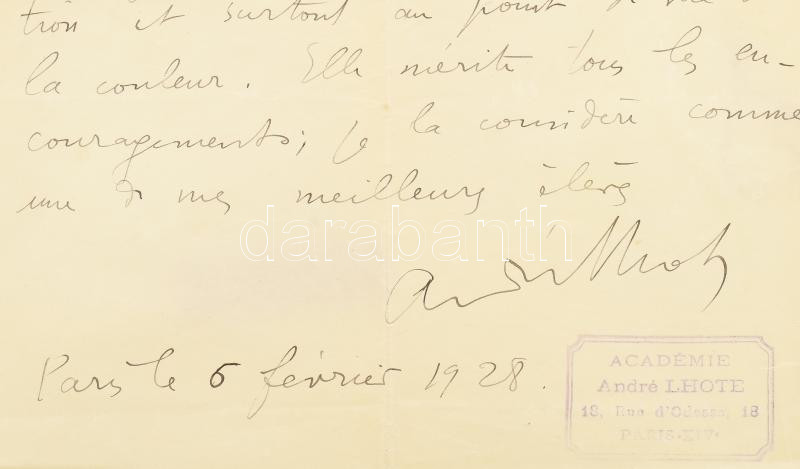 tion et surtout au point de vue
la couleur. Elle mérite tous les en-
couragements; je la considère comme
une de mes meilleurs élèves
André Lhote
Paris le 6 février 1928.
ACADÉMIE
André LHOTE
18, Rue d'Odessa, 18
PARIS-XIV·
darabanth